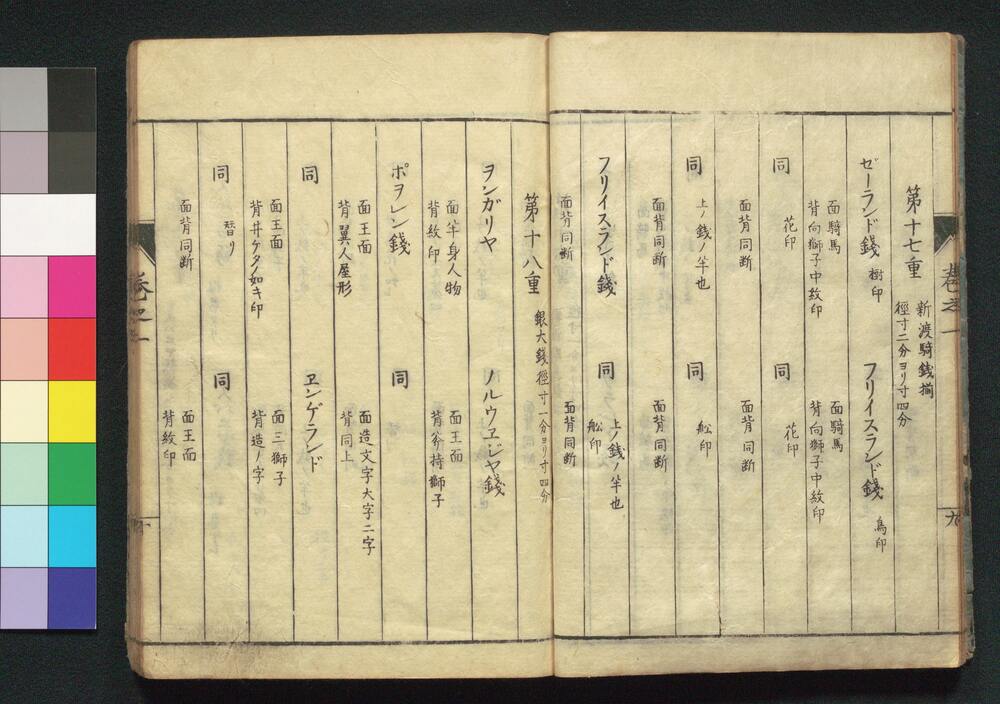 第十七重
新渡騎錢揃
徑寸二分ヨリ寸四分
ゼーランド錢 樹印
面騎馬
背向獅子中紋印
フリイスランド錢 鳥印
面騎馬
背向獅子中紋印
同 花印
面背同断
同 花印
面背同断
同 上ノ錢ノ半也
面背同断
同 舩印
面背同断
フリイスランド錢
面背同断
同 上ノ錢ノ半也
舩印
面背同断
第十八重
銀大錢徑寸一分ヨリ寸四分
ヲンガリヤ
面半身人物
背紋印
ノルウヱジヤ錢
面王面
背斧持獅子
ポヲレン錢
面王面
背翼人屋形
同
面造文字大字二字
背同上
同
面王面
背井ケタノ如キ印
ヱンゲランド
面三獅子
背造ノ字
同 替リ
面背同断
同
面王面
背紋印
卷之一
九
卷之一